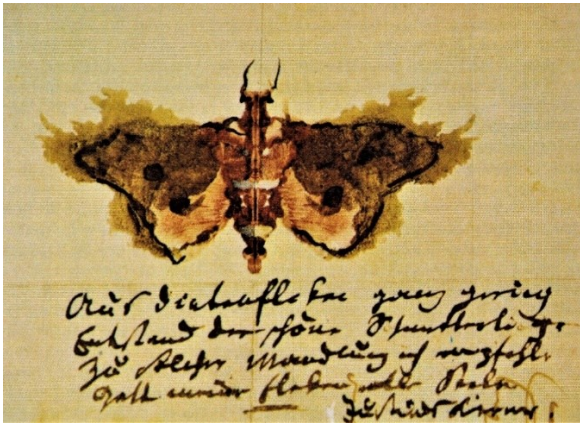 Aus Dintenfleken ganz gering
Entstand der schöne Schmetterling
Zu solcher Wandlung ich empfehle
Gott meine fleken volle Seele
Justinus Kerner.